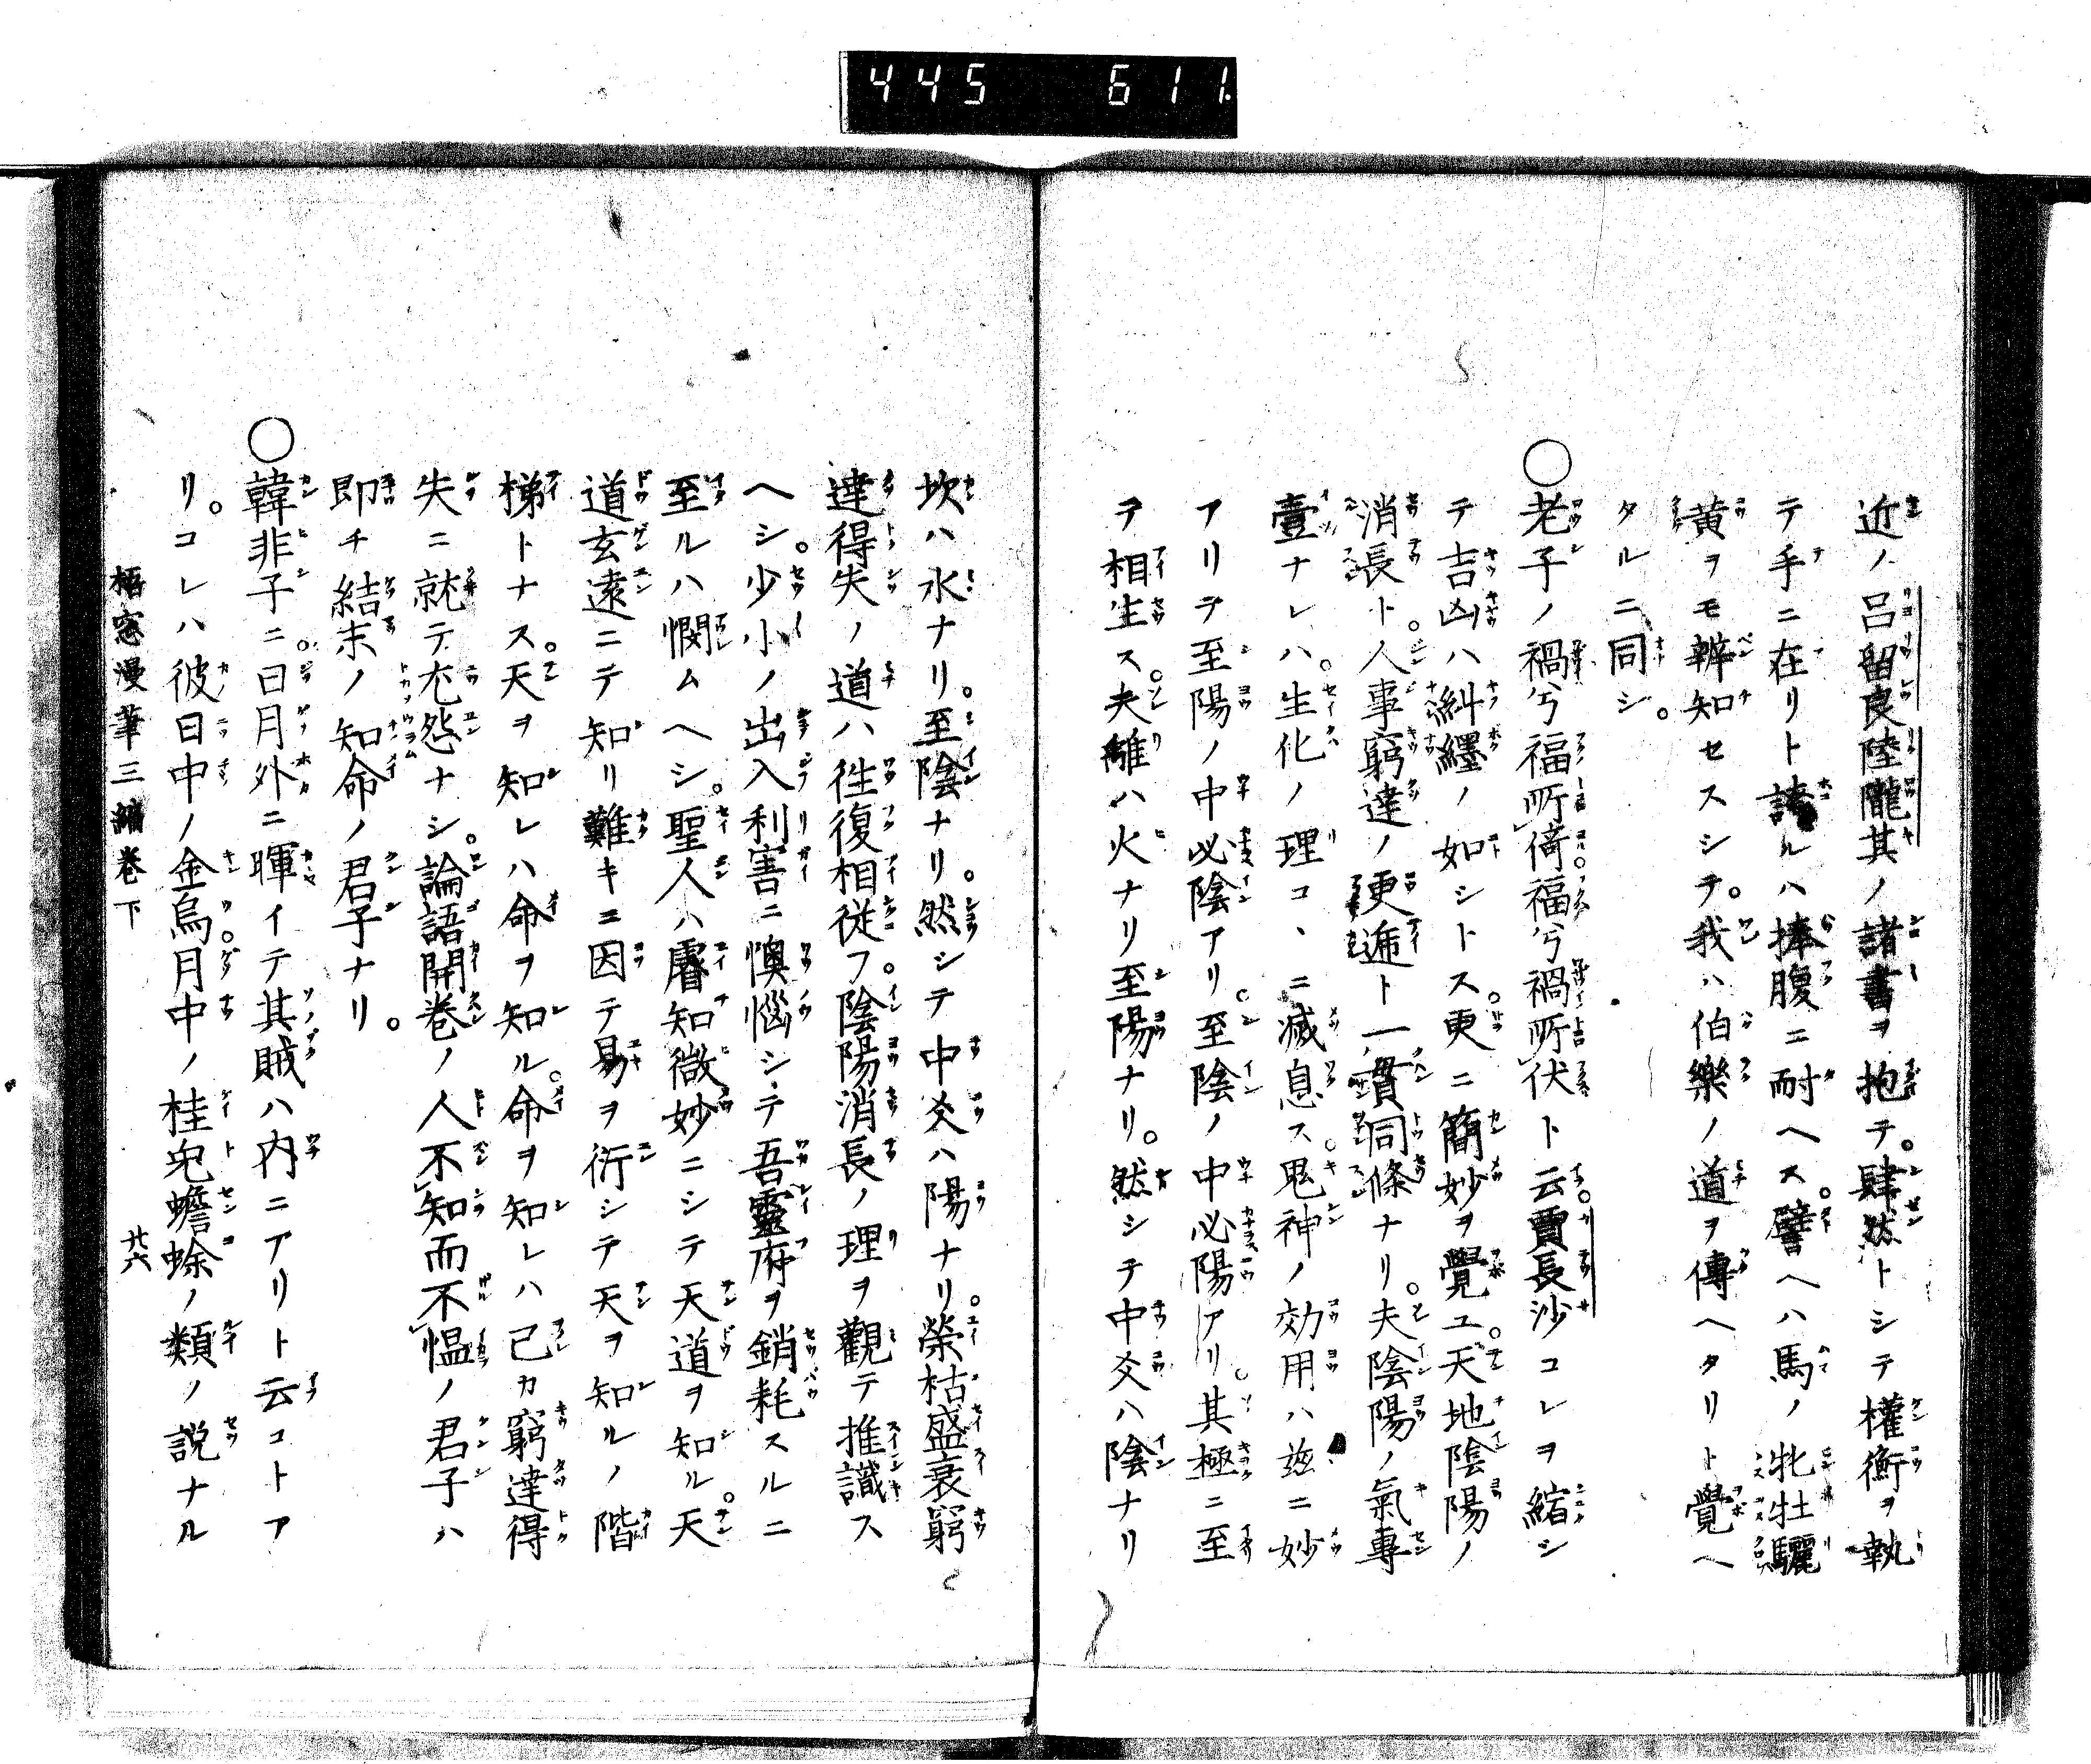 445 611
近ノ呂留良陸隴其ノ諸書ヲ抱テ。肆然トシテ權衡ヲ執
テ手ニ在リト誇ルハ捧腹ニ耐ヘス。譬ヘハ馬ノ牝牡驪
黄ヲモ辨知セスシテ。我ハ伯樂ノ道ヲ傳ヘタリト覺ヘ
タルニ同シ。
○老子ノ禍兮福所倚福兮禍所伏ト云。賈長沙コレヲ縮シ
テ吉凶ハ糾纆ノ如シトス。更ニ簡妙ヲ覺ユ。天地陰陽ノ
消長ト。人事窮達ノ更遞ト一貫同條ナリ。夫陰陽ノ氣專
壹ナレハ。生化ノ理コヽニ滅息ス。鬼神ノ効用ハ玆ニ妙
アリテ至陽ノ中必陰アリ。至陰ノ中必陽アリ。其極ニ至
ヲ相生ス。夫離ハ火ナリ至陽ナリ。然シテ中爻ハ陰ナリ
坎ハ水ナリ。至陰ナリ。然シテ中爻ハ陽ナリ。榮枯盛衰窮
達得失ノ道ハ徃復相従フ。陰陽消長ノ理ヲ觀テ推識ス
ヘシ。少小ノ出入利害ニ懊惱シテ吾靈府ヲ銷耗スルニ
至ルハ憫ムヘシ。聖人ハ睿知微妙ニシテ天道ヲ知ル。天
道玄遠ニテ知リ難キヱ因テ易ヲ衍シテ天ヲ知ルノ階
梯トナス。天ヲ知レハ命ヲ知ル。命ヲ知レハ己カ窮達得
失ニ就テ尤怨ナシ。論語開巻ノ人不知而不慍ノ君子ハ
即チ結末ノ知命ノ君子ナリ。
○韓非子ニ。日月外ニ暉イテ其賊ハ内ニアリト云コトア
リ。コレハ彼日中ノ金烏月中ノ桂兎蟾蜍ノ類ノ説ナル
梧窓漫筆三編巻下 廿六